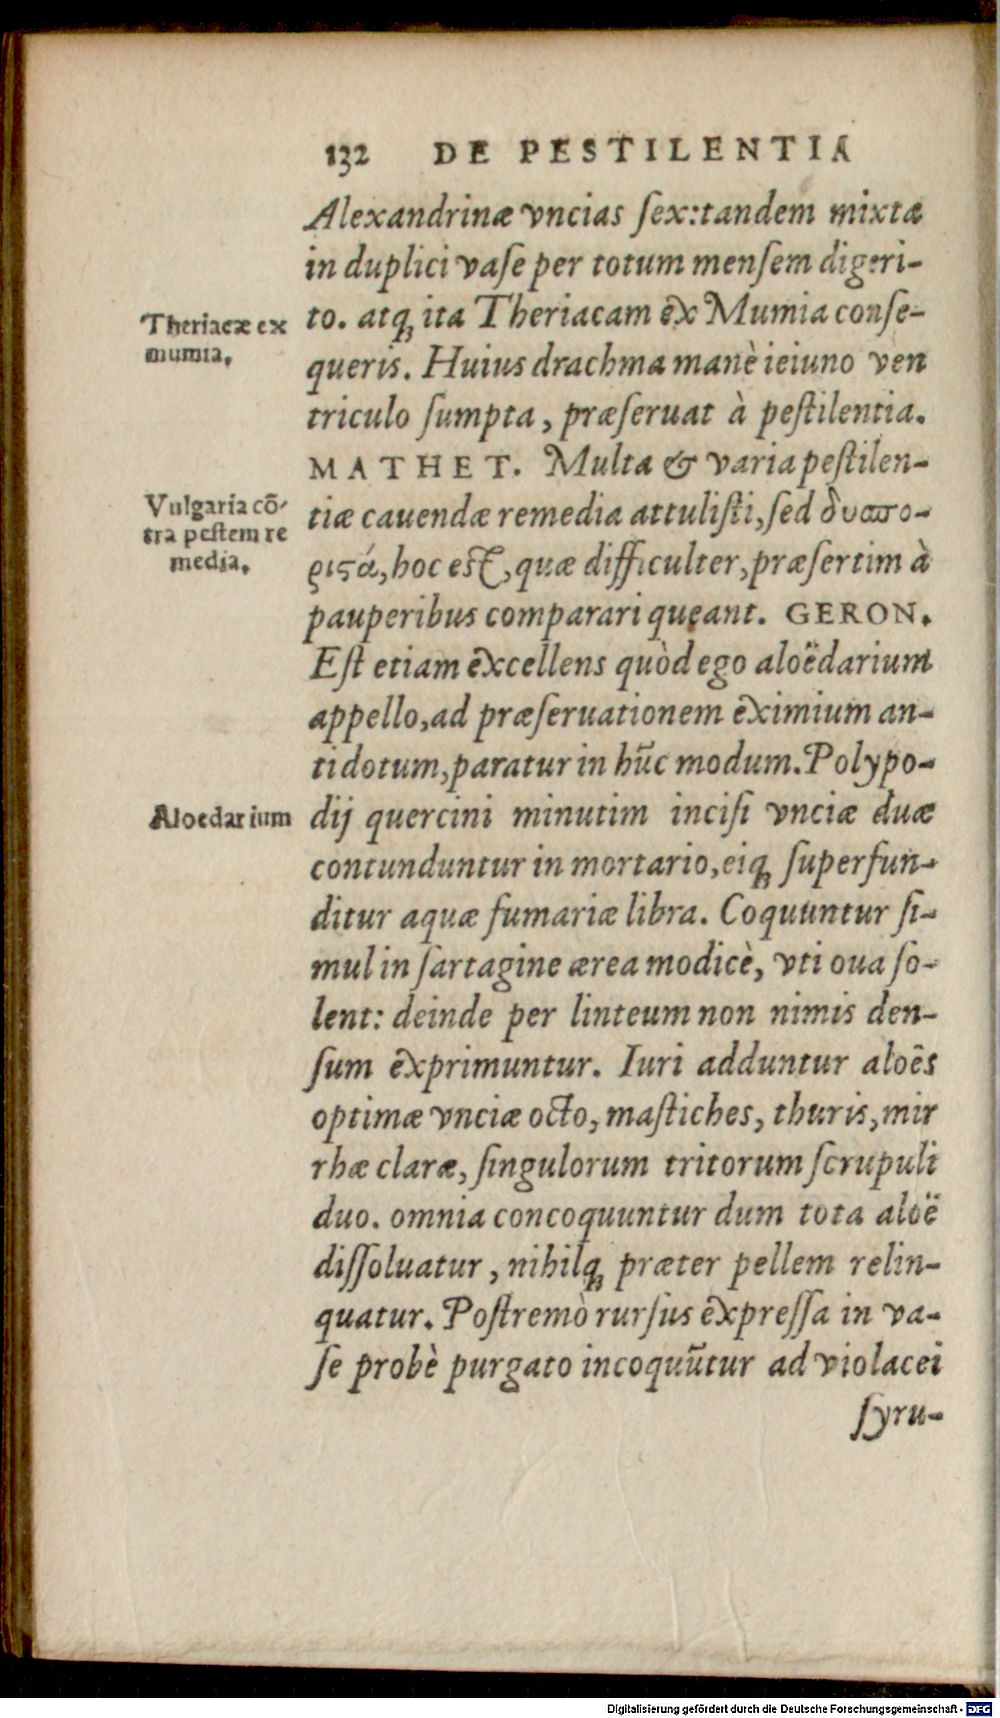 132 DE PESTILENTIA
Alexandrinæ vncias ſex:tandem mixta
in duplici vaſe per totum menſem digeri-
Theriacæ ex
mumia.
to. atq; ita Theriacam ex Mumia conſe-
queris. Huius drachma manè ieiuno ven
triculo ſumpta, præſeruat à peſtilentia.
MATHET. Multa & varia peſtilen-
Vulgaria cõ-
tra peſtem re
media.
tiæ cauendæ remedia attuliſti, ſed δυσπο-
ριστά, hoc eſt, quæ difficulter, præſertim à
pauperibus comparari queant. GERON.
Eſt etiam excellens quòd ego aloëdarium
appello, ad præſeruationem eximium an-
tidotum, paratur in hũc modum. Polypo-
Aloedarium
dij quercini minutim inciſi vnciæ duæ
contunduntur in mortario, eiq; ſuperfun-
ditur aquæ fumariæ libra. Coquuntur ſi-
mul in ſartagine ærea modicè, vti oua ſo-
lent: deinde per linteum non nimis den-
ſum exprimuntur. Iuri adduntur aloës
optimæ vnciæ octo, maſtiches, thuris, mir
rhæ claræ, ſingulorum tritorum ſcrupuli
duo. omnia concoquuntur dum tota aloë
diſſoluatur, nihilq; præter pellem relin-
quatur. Poſtremò rurſus expreſſa in va-
ſe probè purgato incoquũtur ad violacei
ſyru-
Digitalisierung gefördert durch die Deutsche Forschungsgemeinschaft - DFG